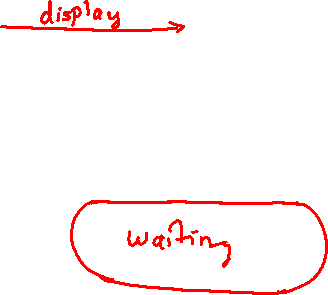 display
waiting